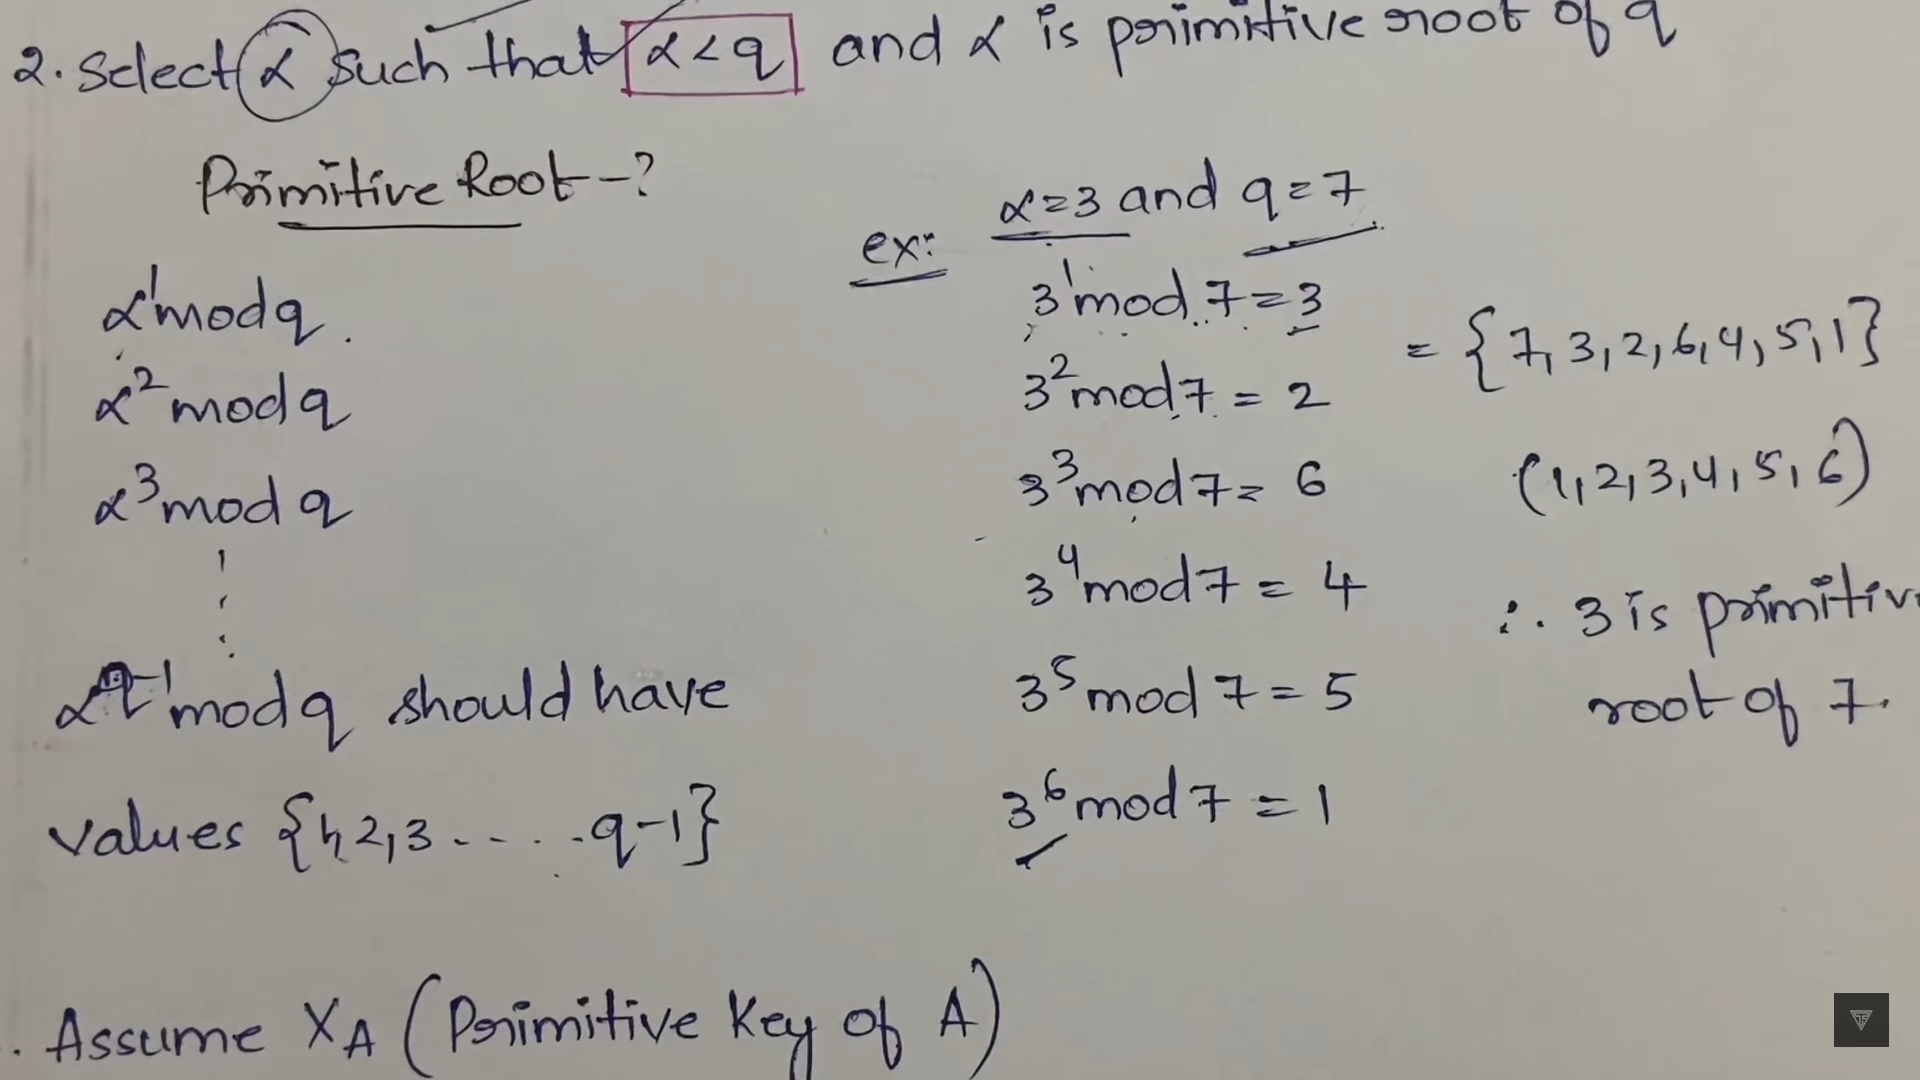 2. Select α such that α < q and α is primitive root of q
Primitive Root - ?
α¹ mod q.
α² mod q
α³ mod q
α^q-1 mod q should have
values {1,2,3 ----- q-1}
ex: α=3 and q=7
3¹ mod 7 = 3
3² mod 7 = 2
3³ mod 7 = 6
3⁴ mod 7 = 4
3⁵ mod 7 = 5
3⁶ mod 7 = 1
= {7, 3, 2, 6, 4, 5, 1}
(1, 2, 3, 4, 5, 6)
∴ 3 is primitiv
root of 7.
. Assume XA (Primitive Key of A)